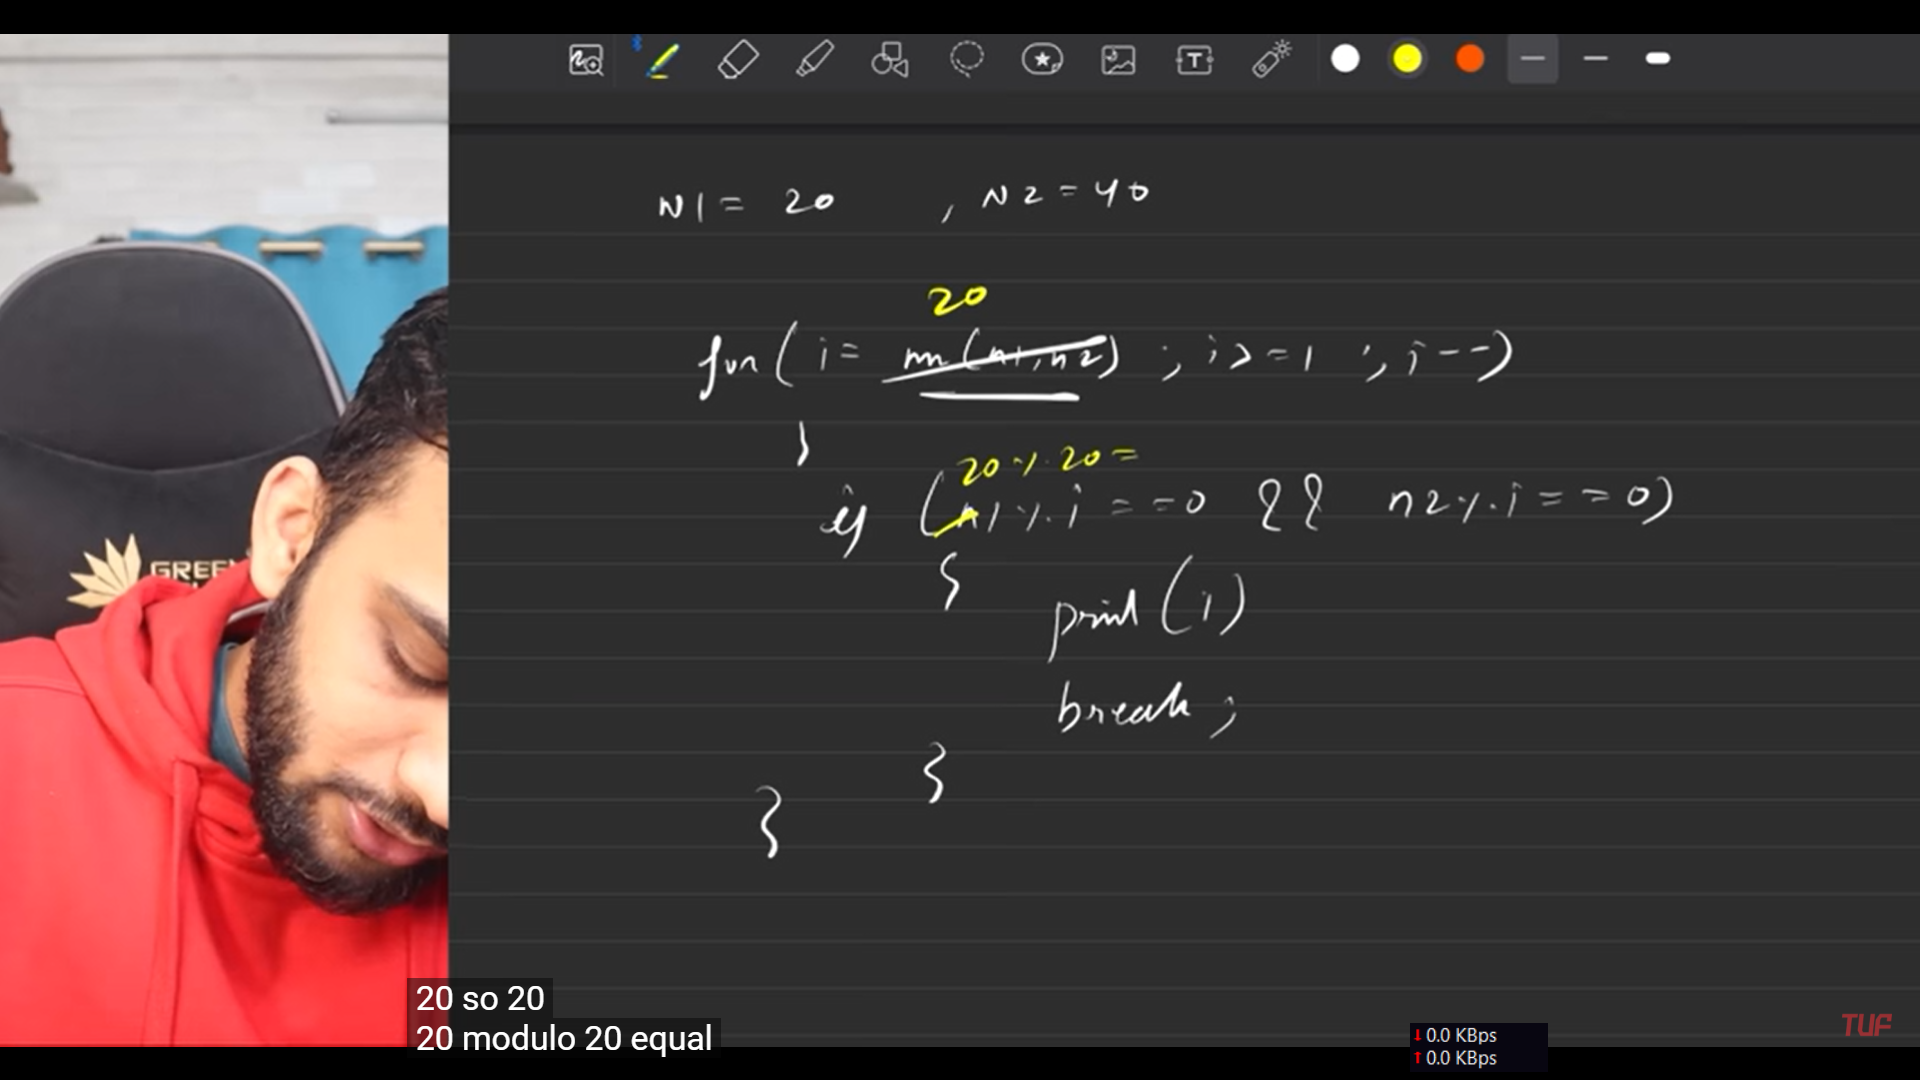 N1 = 20 , N2 = 40
20
for ( i = min(n1,n2) ; i >= 1 ; i--)
{
20 % 20 =
if (n1 % i == 0 && n2 % i == 0)
{
print (i)
break ;
}
}
GREE
20 so 20
20 modulo 20 equal
0.0 KBps
0.0 KBps
TUF